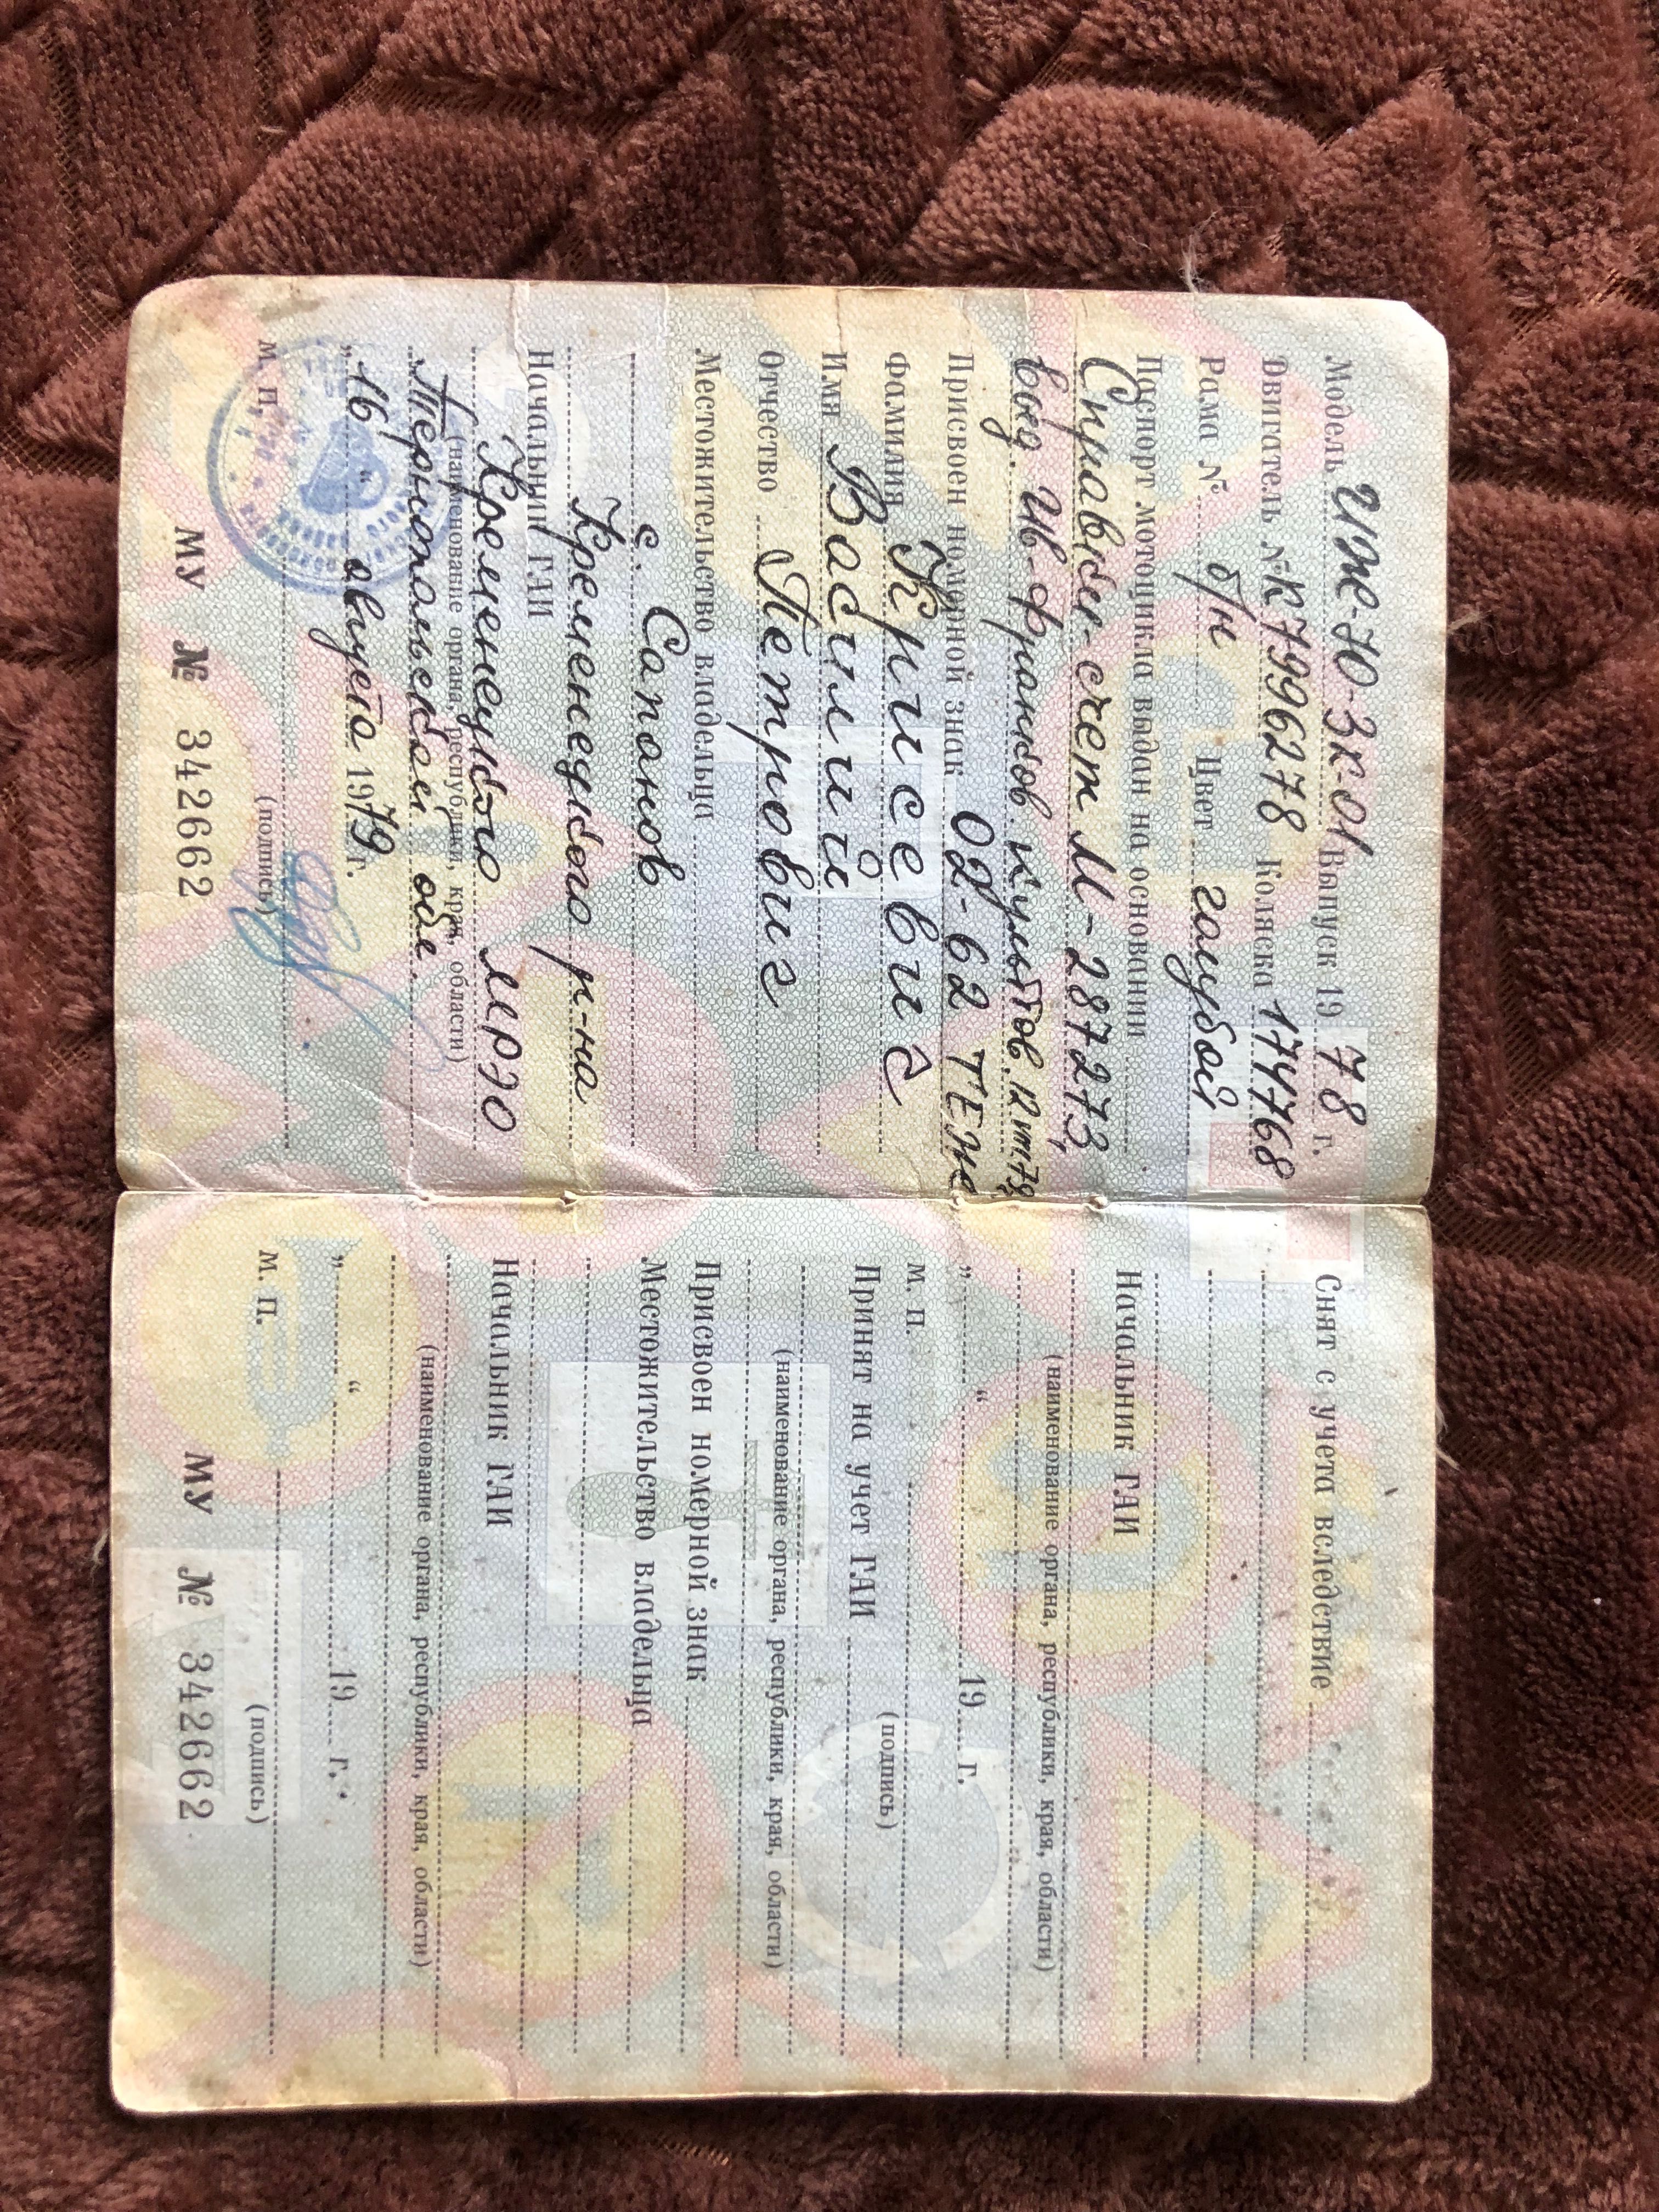 Модель Иж-Ю-3к-01 Выпуск 1978 г.
Двигатель № К7996278 Коляска 174768
Рама № б/н Цвет голубой
Паспорт мотоцикла выдан на основании
Справки-счет М-287273,
выд. Ив-Франков. культов. 12
Присвоен номерной знак 02-62 ТЕЖ
Фамилия Крисевич
Имя Василий
Отчество Петрович
Местожительство владельца
с. Сапанов
Кременецкого р-на
Начальник ГАИ
Кременецкого МРЭО
(наименование органа, республики, края, области)
Тернопольской обл.
„16“ августа 1979 г.
м. п.
(подпись)
МУ № 342662
Снят с учета вследствие
Начальник ГАИ
(наименование органа, республики, края, области)
„ “ 19 г.
м. п.
(подпись)
Принят на учет ГАИ
(наименование органа, республики, края, области)
Присвоен номерной знак
Местожительство владельца
Начальник ГАИ
(наименование органа, республики, края, области)
„ “ 19 г.
м. п.
(подпись)
МУ № 342662